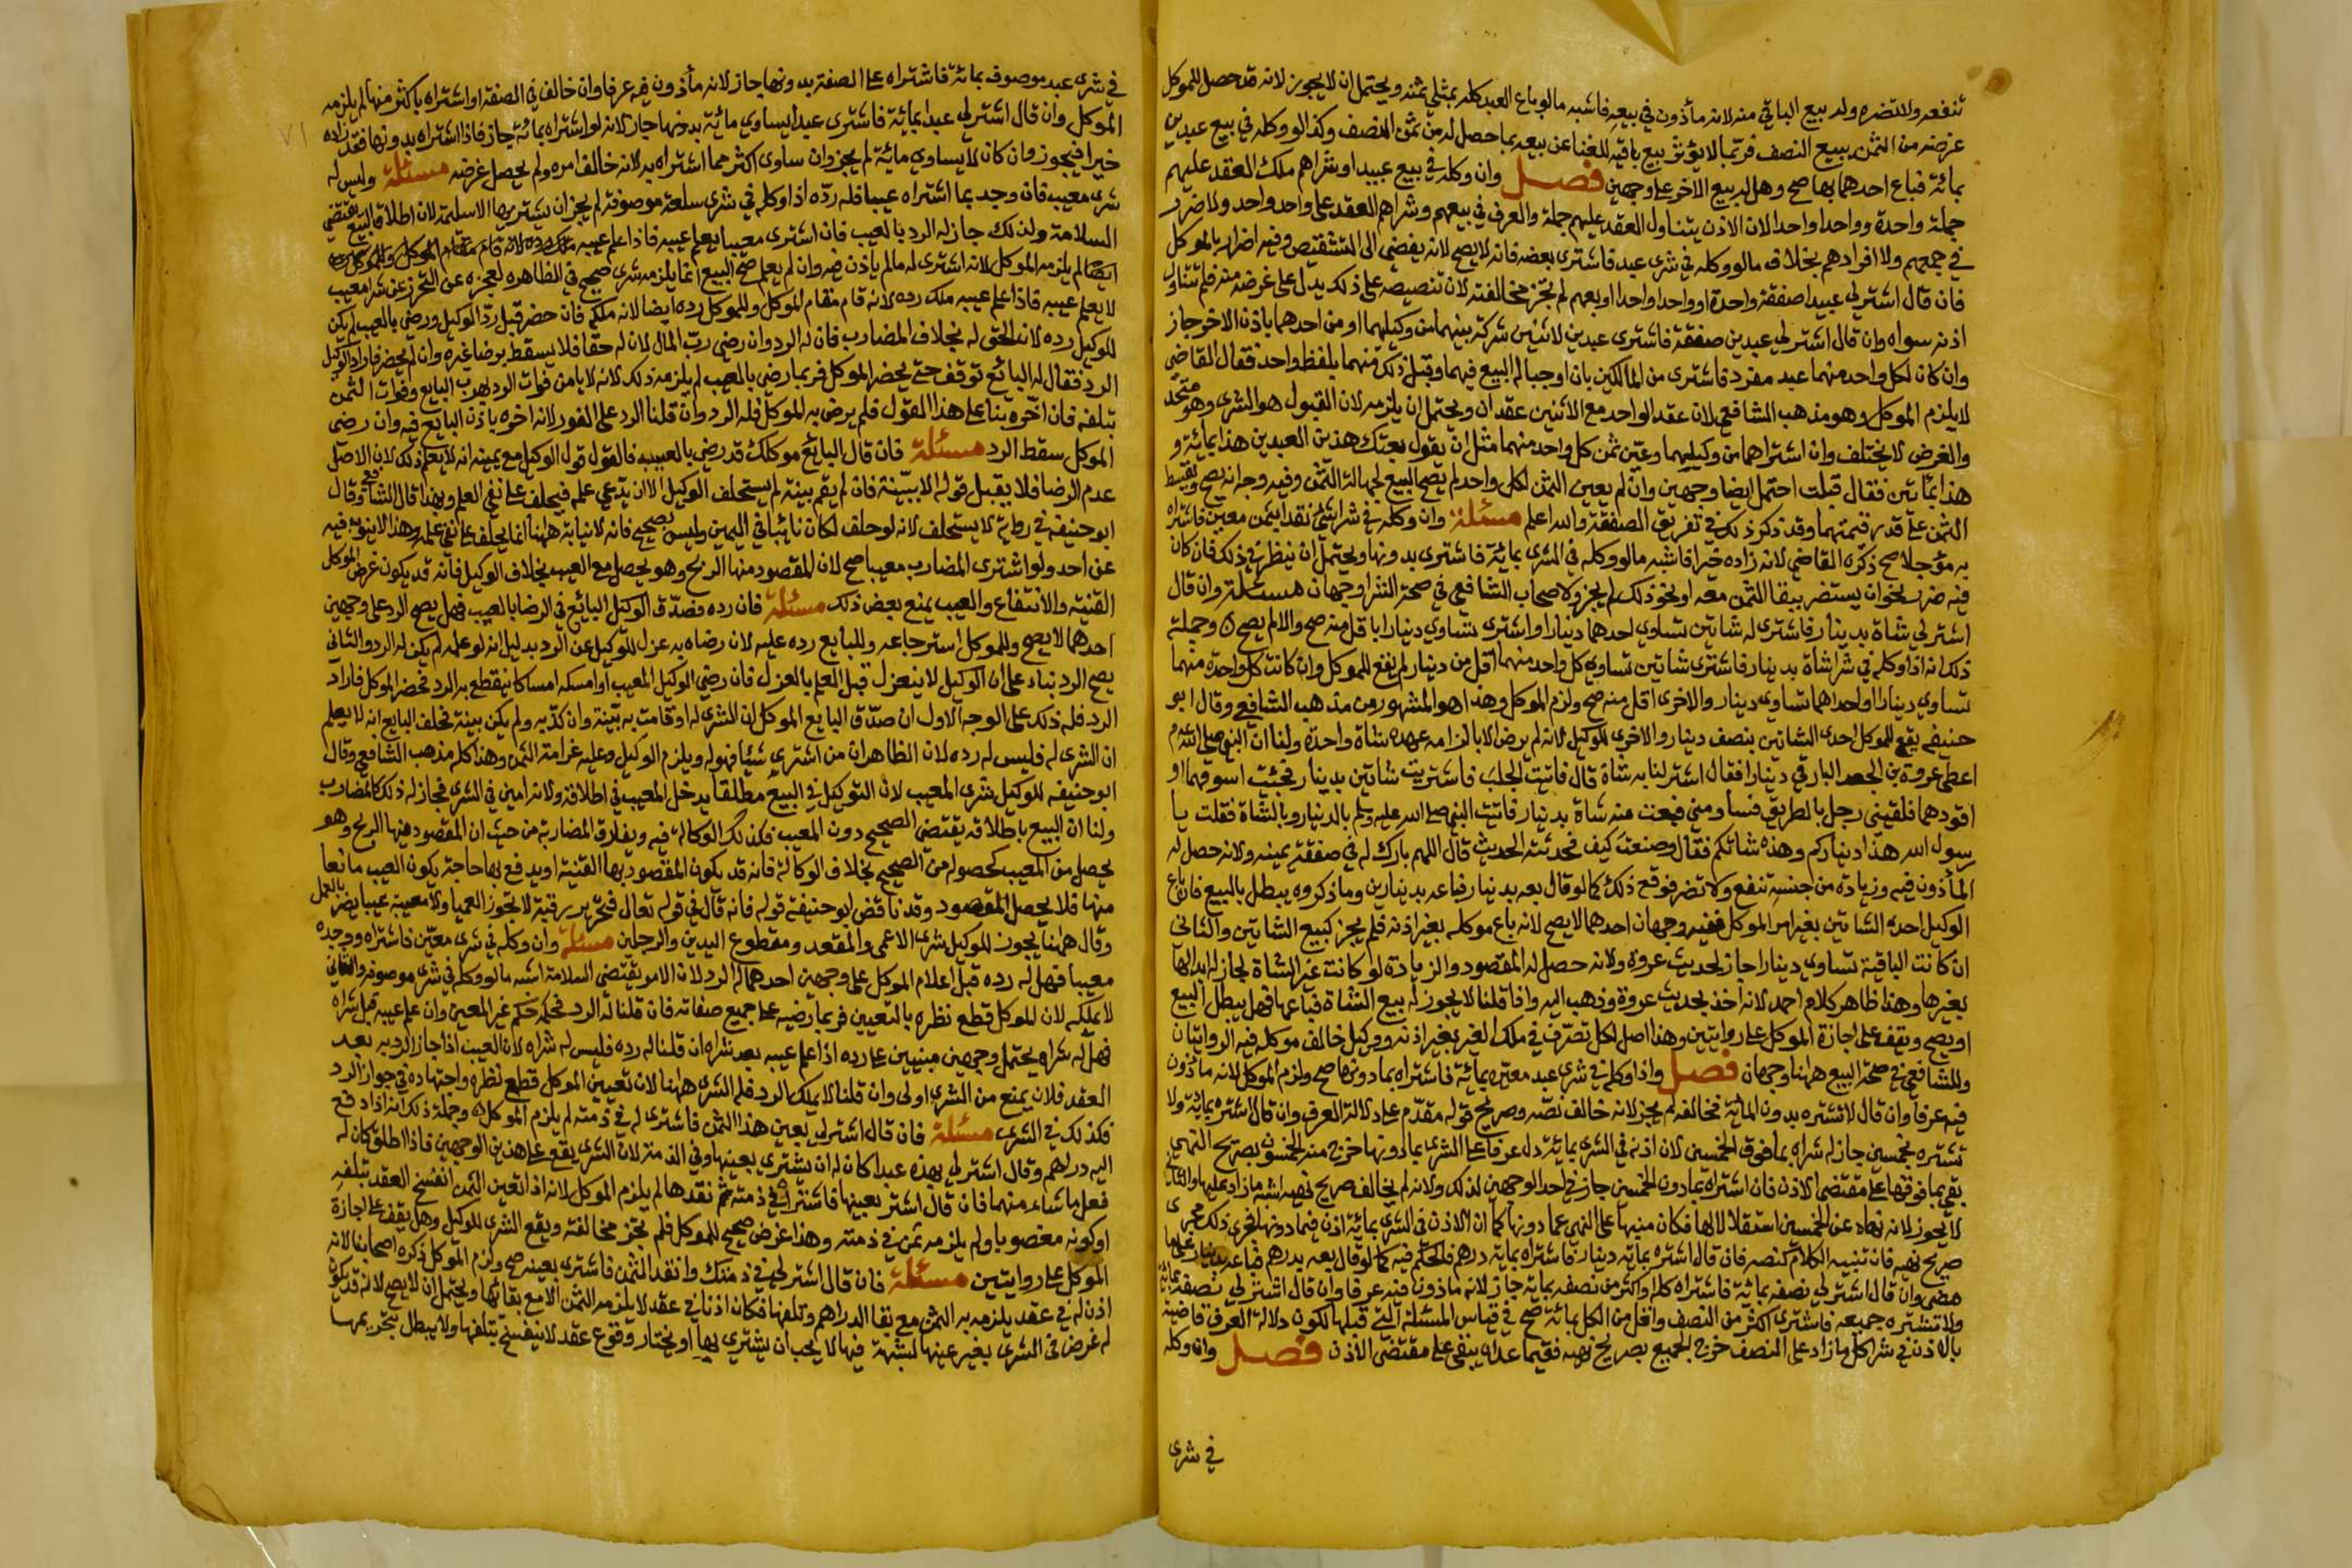 تنفعه ولا تضره وله بيع الباقي منه لانه مأذون في بيعه فاشبه ما لو باع العبد كله بمثلي ثمنه ويحتمل ان لا يجوز لانه قد حصل للموكل
غرضه من الثمن ببيع النصف فربما لا يؤثر بيع باقيه للغنا عن بيعه بما حصل له من ثمن النصف وكذا لو وكله في بيع عبدين
بمائة فباع احدهما بها صح وهل له بيع الاخر على وجهين فصل وان وكله في بيع عبيد او شراهم ملك العقد عليهم
جملة واحدة وواحدا واحدا لان الاذن يتناول العقد عليهم جملة والعرف في بيعهم وشراهم العقد على واحد واحد ولا ضرر
في جمعهم ولا افرادهم بخلاف ما لو وكله في شرى عبد فاشترى بعضه فانه لا يصح لانه يفضي الى التشقيص وفيه اضرار بالموكل
فان قال اشتر لي عبيدا صفقة واحدة او واحدا واحدا او بعهم لم تجز مخالفته لان تنصيصه على ذلك يدل على غرضه منه فلم تتناول
اذنه سواه وان قال اشتر لي عبدين صفقة فاشترى عبدين لاثنين شركة بينهما من وكيلهما او من احدهما باذن الاخر جاز
وان كان لكل واحد منهما عبد مفرد فاشترى من المالكين بان اوجبا له البيع فيهما وقبل ذلك منهما بلفظ واحد فقال القاضي
لا يلزم الموكل وهو مذهب الشافعي لان عقد الواحد مع الاثنين عقدان ويحتمل ان يلزمه لان القبول هو الشرى وهو متحد
والغرض لا يختلف وان اشتراهما من وكيليهما وعين ثمن كل واحد منهما مثل ان يقول بعتك هذين العبدين هذا بمائة و
هذا بمائتين فقال قبلت احتمل ايضا وجهين وان لم يعين الثمن لكل واحد لم يصح البيع لجهالة الثمن وفيه وجه انه يصح ويقسط
الثمن على قدر قيمتهما وقد ذكر ذلك في تفريق الصفقة والله اعلم مسئلة وان وكله في شرا شئ نقدا بثمن معين فاشتراه
به مؤجلا صح ذكره القاضي لانه زاده خيرا فاشبه ما لو وكله في الشرى بمائة فاشترى بدونها ويحتمل ان ينظر في ذلك فان كان
فيه ضرر نحو ان يستضر ببقا الثمن معه او نحو ذلك لم يجز ولاصحاب الشافعي في صحة الشرا وجهان مسئلة وان قال
اشتر لي شاة بدينار فاشترى له شاتين تساوي احدهما دينارا او اشترى تساوي دينارا باقل منه صح والا لم يصح وجملة
ذلك انه اذا وكله في شرا شاة بدينار فاشترى شاتين تساوي كل واحد منهما اقل من دينار لم يقع للموكل وان كانت كل واحدة منهما
تساوي دينارا او احداهما تساوي دينار والاخرى اقل منه صح ولزم الموكل وهذا هو المشهور من مذهب الشافعي وقال ابو
حنيفة يقع للموكل احدى الشاتين بنصف دينار والاخرى للوكيل لانه لم يرض الا بالزامه عهدة شاة واحدة ولنا ان النبي صلى الله م
اعطى عروة بن الجعد البارقي دينارا فقال اشتر لنا به شاة قال فاتيت الجلب فاشتريت شاتين بدينار فجئت اسوقهما او
اقودهما فلقيني رجل بالطريق فساومني فبعت منه شاة بدينار فاتيت النبي صلى الله عليه وسلم بالدينار وبالشاة فقلت يا
رسول الله هذا ديناركم وهذه شاتكم فقال وصنعت كيف فحدثته الحديث قال اللهم بارك له في صفقة يمينه ولانه حصل له
المأذون فيه وزيادة من جنسه تنفع ولا تضر فوقع ذلك كما لو قال بعه بدينار فباعه بدينارين وما ذكروه يبطل بالبيع فان باع
الوكيل احدى الشاتين بغير امر الموكل ففيه وجهان احدهما لا يصح لانه باع موكله بغير اذنه فلم يجز كبيع الشاتين والثاني
ان كانت الباقية تساوي دينارا جاز لحديث عروة ولانه حصل له المقصود والزيادة لو كانت غير الشاة لجاز له ابدالها
بغيرها وهذا ظاهر كلام احمد لانه اخذ بحديث عروة وذهب اليه واذا قلنا لا يجوز له بيع الشاة فباعها فهل يبطل البيع
او يصح ويقف على اجازة الموكل على روايتين وهذا اصل لكل تصرف في ملك الغير بغير اذنه ووكيل خالف موكله فيه الروايتان
وللشافعي في صحة البيع ههنا وجهان فصل واذا وكله في شرى عبد معين بمائة فاشتراه بما دونها صح ولزم الموكل لانه مأذون
فيه عرفا وان قال لا تشتره بدون المائة فخالفه لم يجز لانه خالف نصه وصريح قوله مقدم على دلالة العرف وان قال اشتره بمائة ولا
تشتره بخمسين جاز له شراه بما فوق الخمسين لان اذنه في الشرى بمائة دل عرفا على الشرى بما دونها خرج منه الخمسون بصريح النهي
بقي بما فوقها على مقتضى الاذن فان اشتراه بما دون الخمسين جاز في احد الوجهين لذلك ولانه لم يخالف صريح نهيه اشبه ما زاد عليها والثاني
لا يجوز لانه نهاه عن الخمسين استقلالا لها فكان منبها على النهي عما دونها كما ان الاذن في الشرى بمائة اذن فيما دونها فجرى ذلك مجرى
صريح نهيه فان تنبيه الكلام كنصه فان قال اشتره بمائة دينار فاشتراه بمائة درهم فالحكم فيه كما لو قال بعه بدرهم فباعه بدينار على ما
مضى وان قال اشتر لي نصفه بمائة فاشتراه كله او اكثر من نصفه بمائة جاز لانه مأذون فيه عرفا وان قال اشتر لي نصفه بمائة
ولا تشتره جميعه فاشترى اكثر من النصف واقل من الكل بمائة صح في قياس المسئلة التي قبلها لكون دلالة العرف قاضية
بالاذن في شرا كل ما زاد على النصف خرج الجميع بصريح نهيه ففيما عداه يبقى على مقتضى الاذن فصل وان وكله
في شرى
في شرى عبد موصوف بمائة فاشتراه على الصفة بدونها جاز لانه مأذون فيه عرفا وان خالف في الصفة او اشتراه باكثر منها لم يلزمه
الموكل وان قال اشتر لي عبدا بمائة فاشترى عبدا يساوي مائة بدونها جاز لانه لو اشتراه بمائة جاز فاذا اشتراه بدونها فقد زاده
خيرا فيجوز وان كان لا يساوي مائة لم يجز وان ساوى اكثر مما اشتراه به لانه خالف امره ولم يحصل غرضه مسئلة وليس له
شرى معيب فان وجد بما اشتراه عيبا فله رده اذا وكله في شرى سلعة موصوفة لم يجز ان يشتريها الا سليمة لان اطلاق البيع يقتضي
السلامة ولذلك جاز له الرد بالعيب فان اشترى معيبا يعلم عيبه
لم يلزمه الموكل لانه اشترى له ما لم ياذن فيه وان لم يعلم صح البيع انما يلزمه شرى صحيح في الظاهر لعجزه عن التحرز عن شرا معيب
لا يعلم عيبه فاذا علم عيبه ملك رده لانه قام مقام الموكل وللموكل رده ايضا لانه ملكه فان حضر قبل رد الوكيل ورضي بالعيب لم يكن
للوكيل رده لان الحق له بخلاف المضارب فان له الرد وان رضي رب المال لان له حقا فلا يسقط برضا غيره وان لم يحضر فاراد الوكيل
الرد فقال له البائع توقف حتى يحضر الموكل فربما رضي بالعيب لم يلزمه ذلك لانه لا يامن فوات الرد بهرب البايع وفوات الثمن
بتلفه فان اخره بنا على هذا القول فلم يرض به الموكل فله الرد وان قلنا الرد على الفور لانه اخره باذن البايع فيه وان رضي
الموكل سقط الرد مسئلة فان قال البائع موكلك قد رضي بالعيب فالقول قول الوكيل مع يمينه انه لا يعلم ذلك لان الاصل
عدم الرضا فلا يقبل قوله الا ببينة فان لم يقم بينة لم يستحلف الوكيل الا ان يدعي علمه فيحلف على نفي العلم وبهذا قال الشافعي وقال
ابو حنيفة في رواية لا يستحلف لانه لو حلف لكان نائبا في اليمين وليس بصحيح فانه لا نيابة ههنا انما يحلف على نفي علمه وهذا لا ينوب فيه
عن احد ولو اشترى المضارب معيبا صح لان المقصود منها الربح وهو يحصل مع العيب بخلاف الوكيل فانه قد يكون غرض الموكل
القنية والانتفاع والعيب يمنع بعض ذلك مسئلة فان رده فصدق الوكيل البائع في الرضا بالعيب فهل يصح الرد على وجهين
احدهما لا يصح وللموكل استرجاعه وللبايع رده عليه لان رضاه به عزل للوكيل عن الرد بدليل انه لو علمه لم يكن له الرد والثاني
يصح الرد بناء على ان الوكيل لا ينعزل قبل العلم بالعزل فان رضي الوكيل المعيب او امسكه امساكا ينقطع به الرد فحضر الموكل فاراد
الرد فله ذلك على الوجه الاول ان صدق البايع الموكل ان الشرى له او قامت به بينة وان كذبه ولم يكن بينة فحلف البايع انه لا يعلم
ان الشرى له فليس له رده لان الظاهر ان من اشترى شيئا فهو له ويلزم الوكيل وعليه غرامة الثمن وهذا كله مذهب الشافعي وقال
ابو حنيفة للوكيل شرى المعيب لان التوكيل في البيع مطلقا يدخل المعيب في اطلاقه ولانه امين في الشرى فجاز له ذلك كالمضارب
ولنا ان البيع باطلاقه يقتضي الصحيح دون المعيب فكذلك الوكالة فيه ويفارق المضاربة من حيث ان المقصود فيها الربح وهو
يحصل من المعيب كحصوله من الصحيح بخلاف الوكالة فانه قد يكون المقصود بها القنية او يدفع بها حاجة يكون العيب مانعا
منها فلا يحصل المقصود وقد ناقض ابو حنيفة قوله فانه قال في قوله تعال فتحرير رقبة لا تجوز العميا ولا معيبة عيبا يضر بالعمل
وقال ههنا يجوز للوكيل شرى الاعمى والمقعد ومقطوع اليدين والرجلين مسئلة وان وكله في شرى معين فاشتراه ووجده
معيبا فهل له رده قبل اعلام الموكل على وجهين احدهما له الرد لان الامر يقتضي السلامة اشبه ما لو وكله في شرى موصوفة والثاني
لا يملكه لان الموكل قطع نظره بالتعيين فربما رضيه على جميع صفاته فان قلنا له الرد فحكمه حكم غير المعين وان علم عيبه قبل شراه
فهل له شراه يحتمل وجهين مبنيين على رده اذا علم عيبه بعد شراه ان قلنا له رده فليس له شراه لان العيب اذا جاز الرد به بعد
العقد فلان يمنع من الشرى اولى وان قلنا لا يملك الرد فله الشرى ههنا لان تعيين الموكل قطع نظره واجتهاده في جواز الرد
فكذلك في الشرى مسئلة فان قال اشتر لي بعين هذا الثمن فاشترى له في ذمته لم يلزم الموكل وجملة ذلك انه اذا دفع
اليه دراهم وقال اشتر لي بهذه عبدا كان له ان يشتري بعينها وفي الذمة لان الشرى يقع على هذين الوجهين فاذا اطلق كان له
فعل ما شاء منهما فان قال اشتر بعينها فاشتراه في ذمته ثم نقدها لم يلزم الموكل لانه اذا تعين الثمن انفسخ العقد بتلفه
او كونه مغصوبا ولم يلزمه ثمن في ذمته وهذا غرض صحيح للموكل فلم تجز مخالفته ويقع الشرى للوكيل وهل يقف على اجازة
الموكل على روايتين مسئلة فان قال اشتر لي في ذمتك وانقد الثمن فاشترى بعينه صح ولزم الموكل ذكره اصحابنا لانه
اذن له في عقد يلزمه به الثمن مع بقا الدراهم وتلفها فكان اذنا في عقد لا يلزمه الثمن الا مع بقائها ويحتمل ان لا يصح لانه قد يكون
له غرض في الشرى بغير عينها لشبهة فيها لا يحب ان يشتري بها او يختار وقوع عقد لا ينفسخ بتلفها ولا يبطل بتحريمها